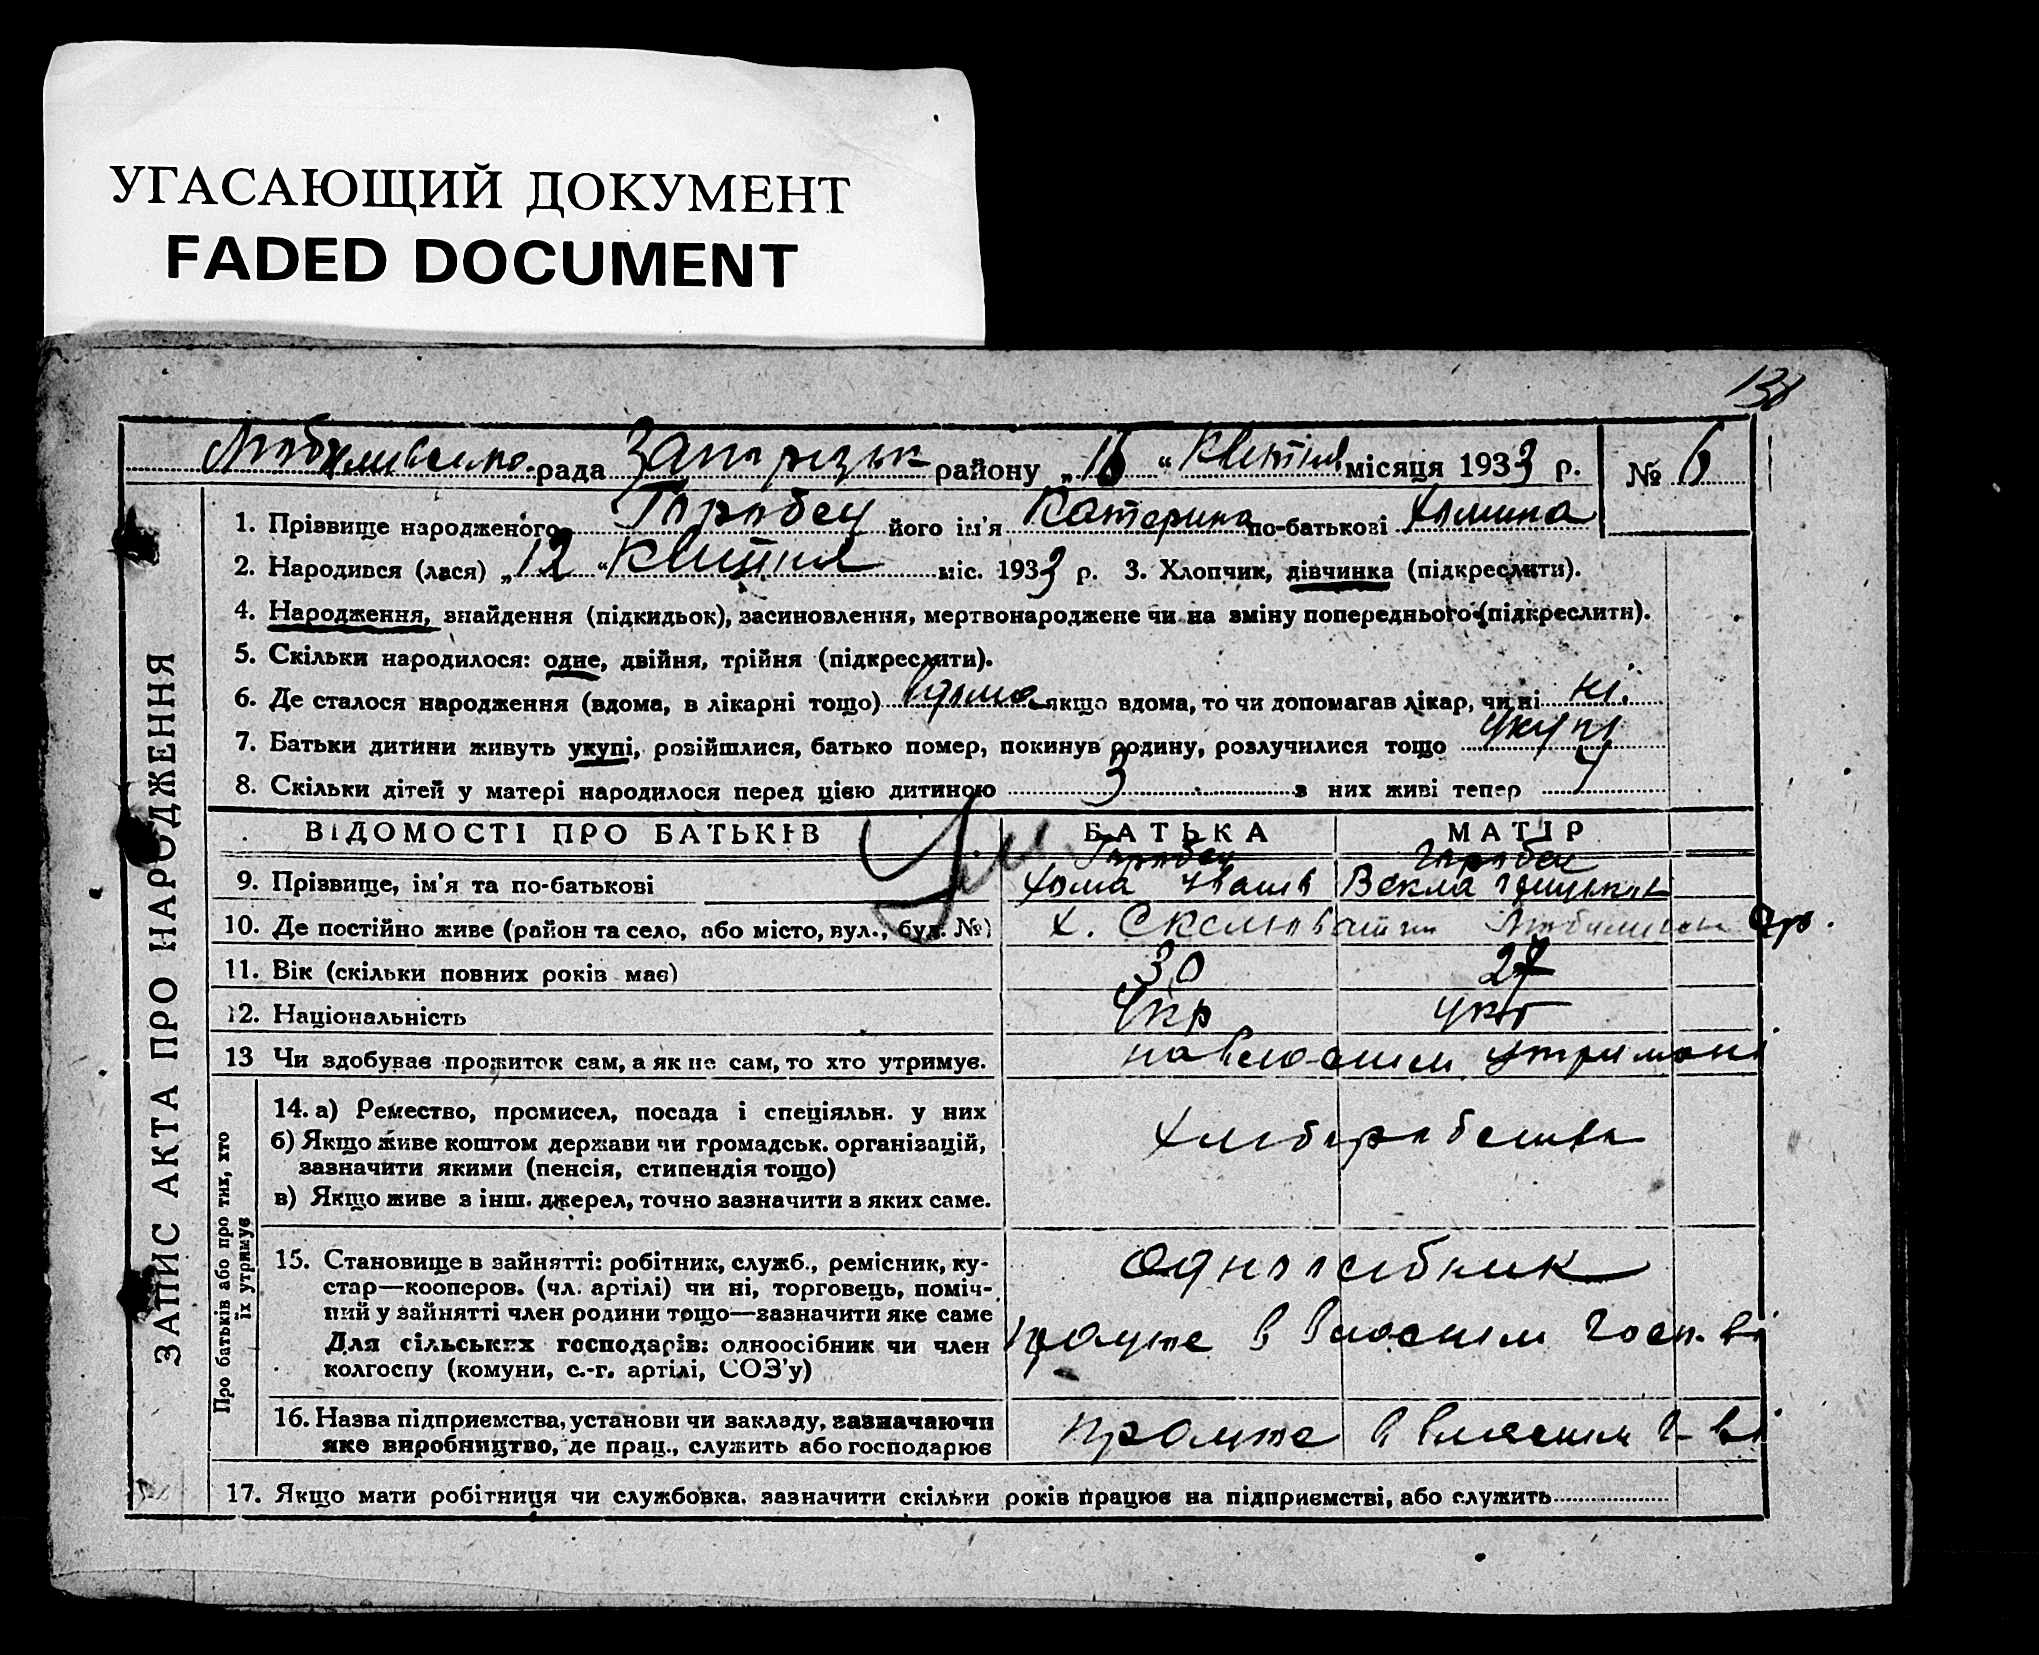 УГАСАЮЩИЙ ДОКУМЕНТ
FADED DOCUMENT
138
рада Запорізьк району „16 “ Квітня місяця 1933 р. № 6
ЗАПИС АКТА ПРО НАРОДЖЕННЯ
1. Прізвище народженого Горобец його ім'я Катерина по-батькові Хомина
2. Народився (лася) „12 “ Квітня міс. 1933 р. 3. Хлопчик, дівчинка (підкреслити).
4. Народження, знайдення (підкидьок), засиновлення, мертвонароджене чи на зміну попереднього (підкреслити).
5. Скільки народилося: одне, двійня, трійня (підкреслити).
6. Де сталося народження (вдома, в лікарні тощо) вдома якщо вдома, то чи допомагав лікар, чи ні ні.
7. Батьки дитини живуть укупі, розійшлися, батько помер, покинув родину, розлучилися тощо укупі
8. Скільки дітей у матері народилося перед цією дитиною 3 з них живі тепер 4
ВІДОМОСТІ ПРО БАТЬКІВ БАТЬКА МАТІР
Горобец Горобец
9. Прізвище, ім'я та по-батькові Хома Іванів Векла
10. Де постійно живе (район та село, або місто, вул., буд. №) х.
11. Вік (скільки повних років має) 30 27
12. Національність Укр укр
13 Чи здобував прожиток сам, а як не сам, то хто утримує. на власним утримані
Про батьків або про тих, хто їх утримує
14. а) Ремество, промисел, посада і спеціяльн. у них
б) Якщо живе коштом держави чи громадськ. організацій, Хліборобство
зазначити якими (пенсія, стипендія тощо)
в) Якщо живе з інш. джерел, точно зазначити з яких саме.
15. Становище в зайнятті: робітник, служб., ремісник, ку- Одноосібник
стар—кооперов. (чл. артілі) чи ні, торговець, поміч-
ний у зайнятті член родини тощо—зазначити яке саме
Для сільських господарів: одноосібник чи член працює в власним госп. ві
колгоспу (комуни, с.-г. артілі, СОЗ'у)
16. Назва підприємства, установи чи закладу, зазначаючи працює в власним г-ві
яке виробництво, де прац., служить або господарює
17. Якщо мати робітниця чи службовка, зазначити скільки років працює на підприємстві, або служить